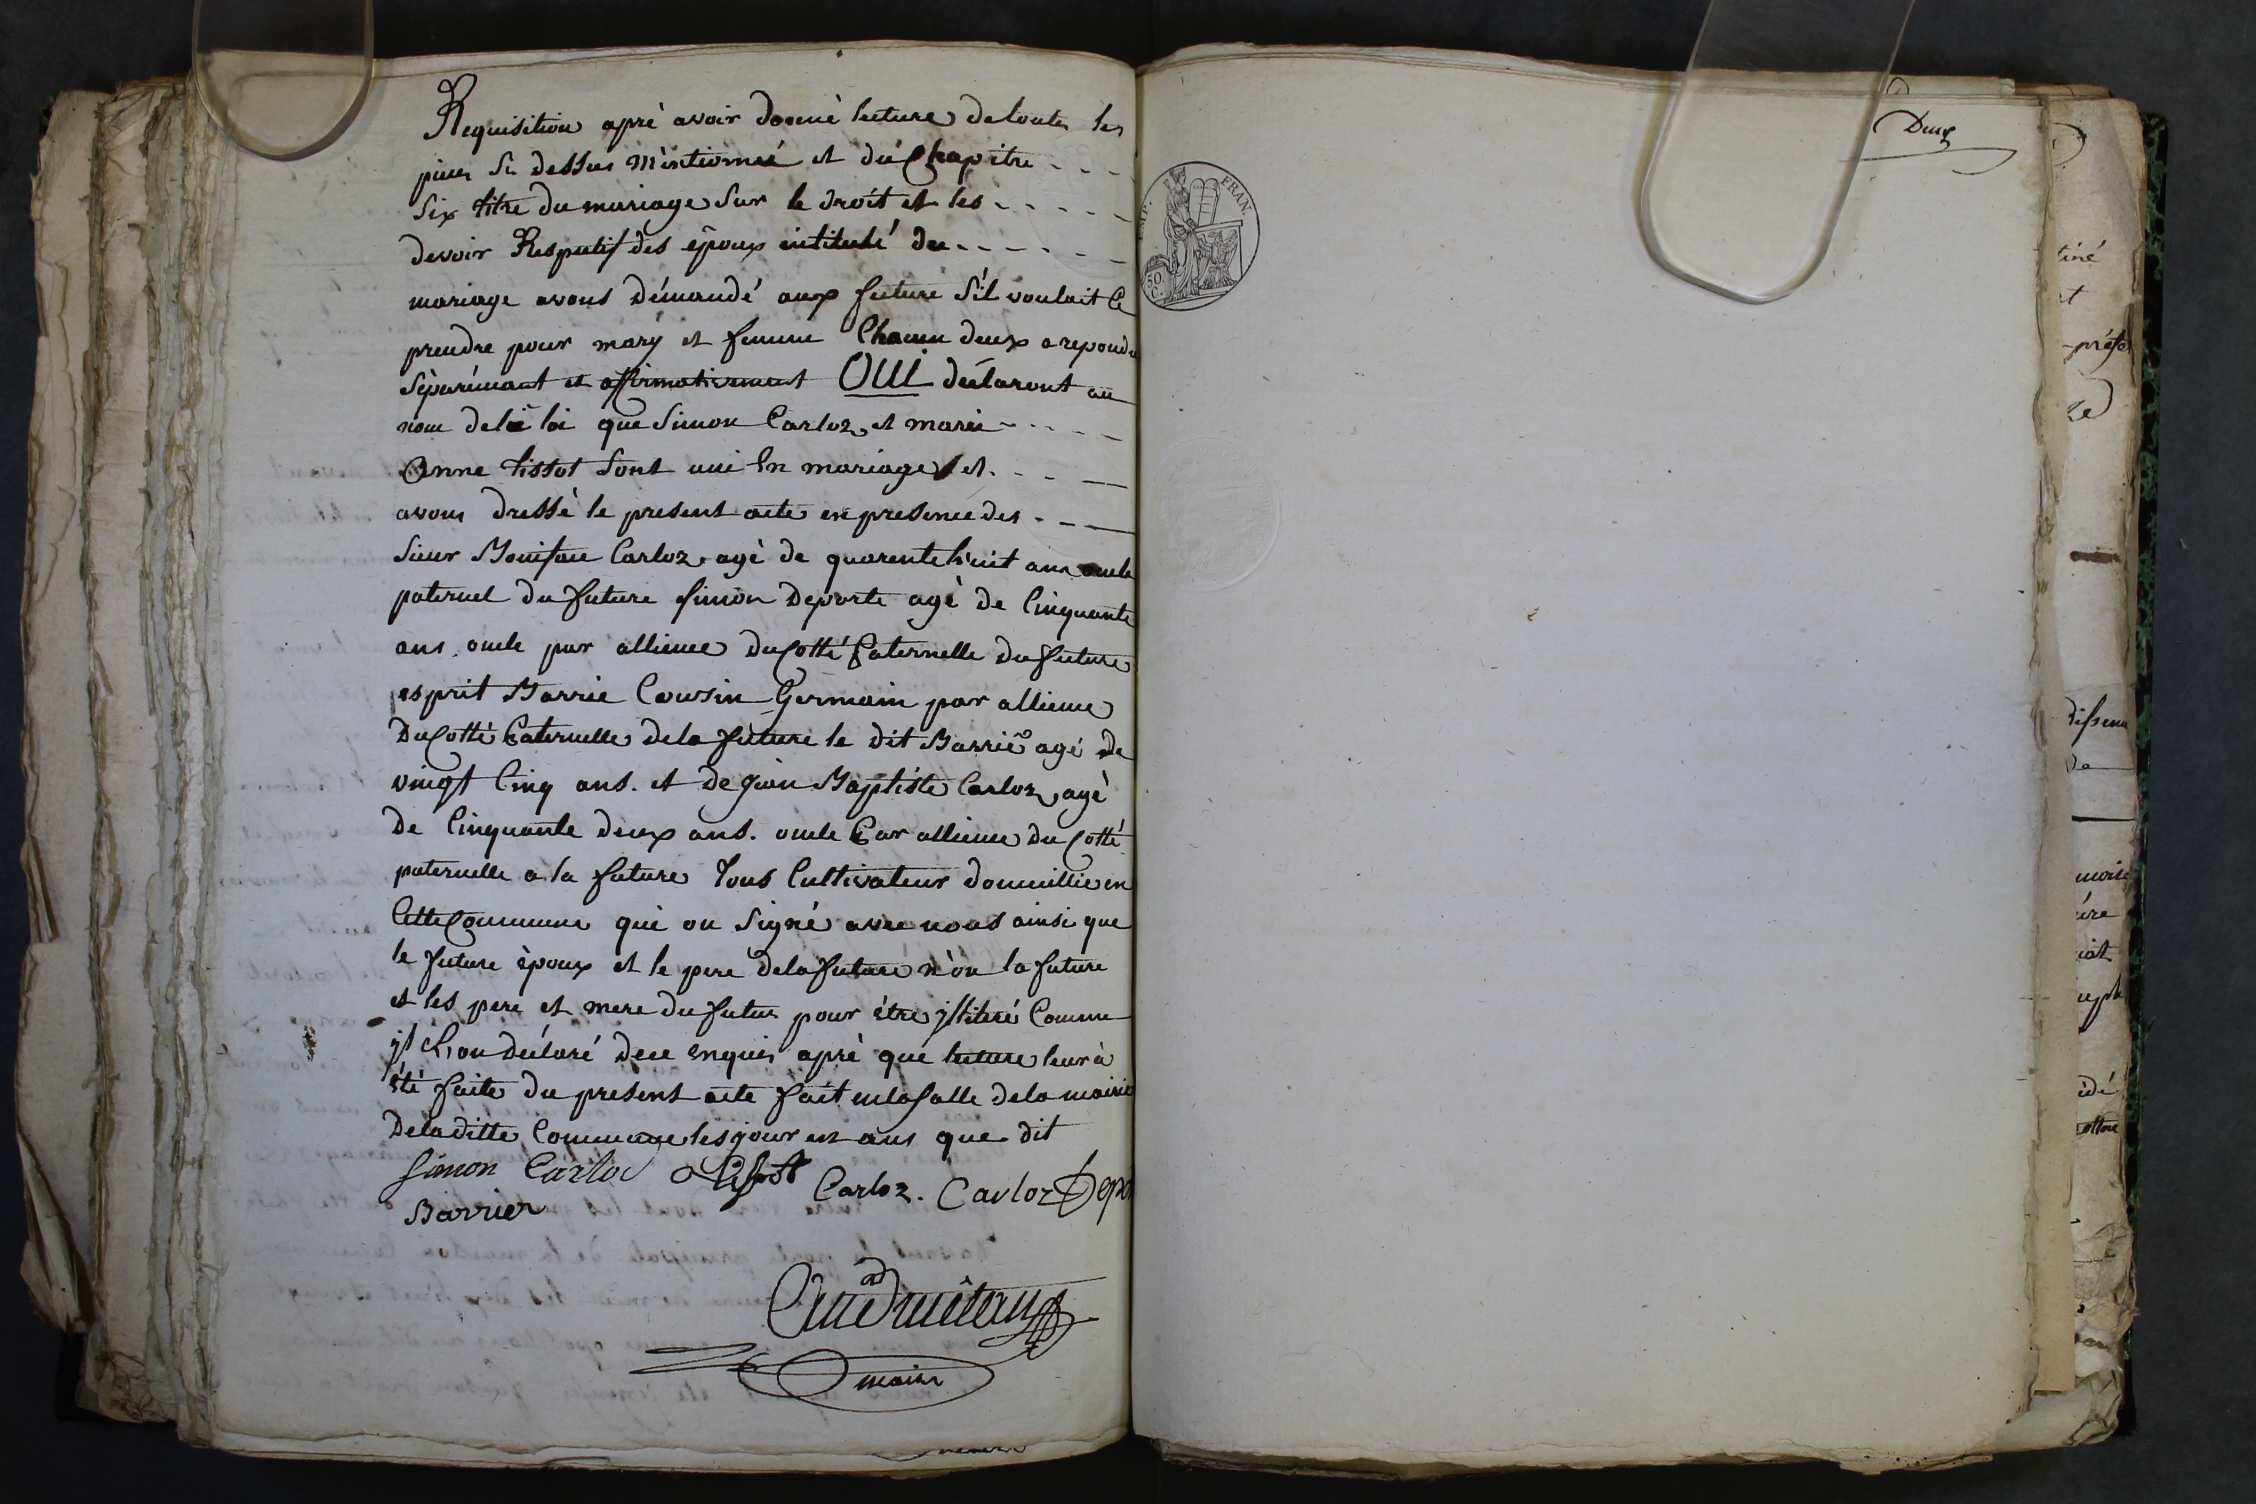 Requisition aprè avoir donné lecture de toutes les
pieces si dessus mentionneé et du Chapitre
Six titre du mariage sur le droit et les
devoir Respectif des époux intitulé du
mariage avons démandé aux future s'il voulait Ce
prendre pour mary et femme Chacun deux a repondu
séparémant et affirmativement OUI déclaront au
nom de la loi que Simon Carloz et marie
Anne tissot sont uni En mariage et
avons dressé le present acte en presence des
sieur Boniface Carloz agé de quarente huit ans oncle
paternel du future simon Deporte agé de Cinquante
ans oncle par allience du Cotté Paternelle du future
esprit Barrie Cousin Germain par allience
Du Cotté Paternelle de la future le dit Barrié agé de
vingt Cinq ans. et de jean Baptiste Carloz agé
De Cinquante deux ans. oncle Par allience du Cotté
paternelle a la future Tous Cultivateur domicillié en
Cette Commune qui on signé avec nous ainsi que
le future époux et le pere de la future n'on la future
et les pere et mere du futur pour être jlliteré Comme
jl L'on déclaré de ce enquis aprè que lecture leur à
été faite du present acte fait en la salle de la mairie
De la ditte Commune les jour et ans que dit
Simon Carloz Tissot Carloz. Carloz Depor
Barrier
maire
EMP. FRAN.
50 C.